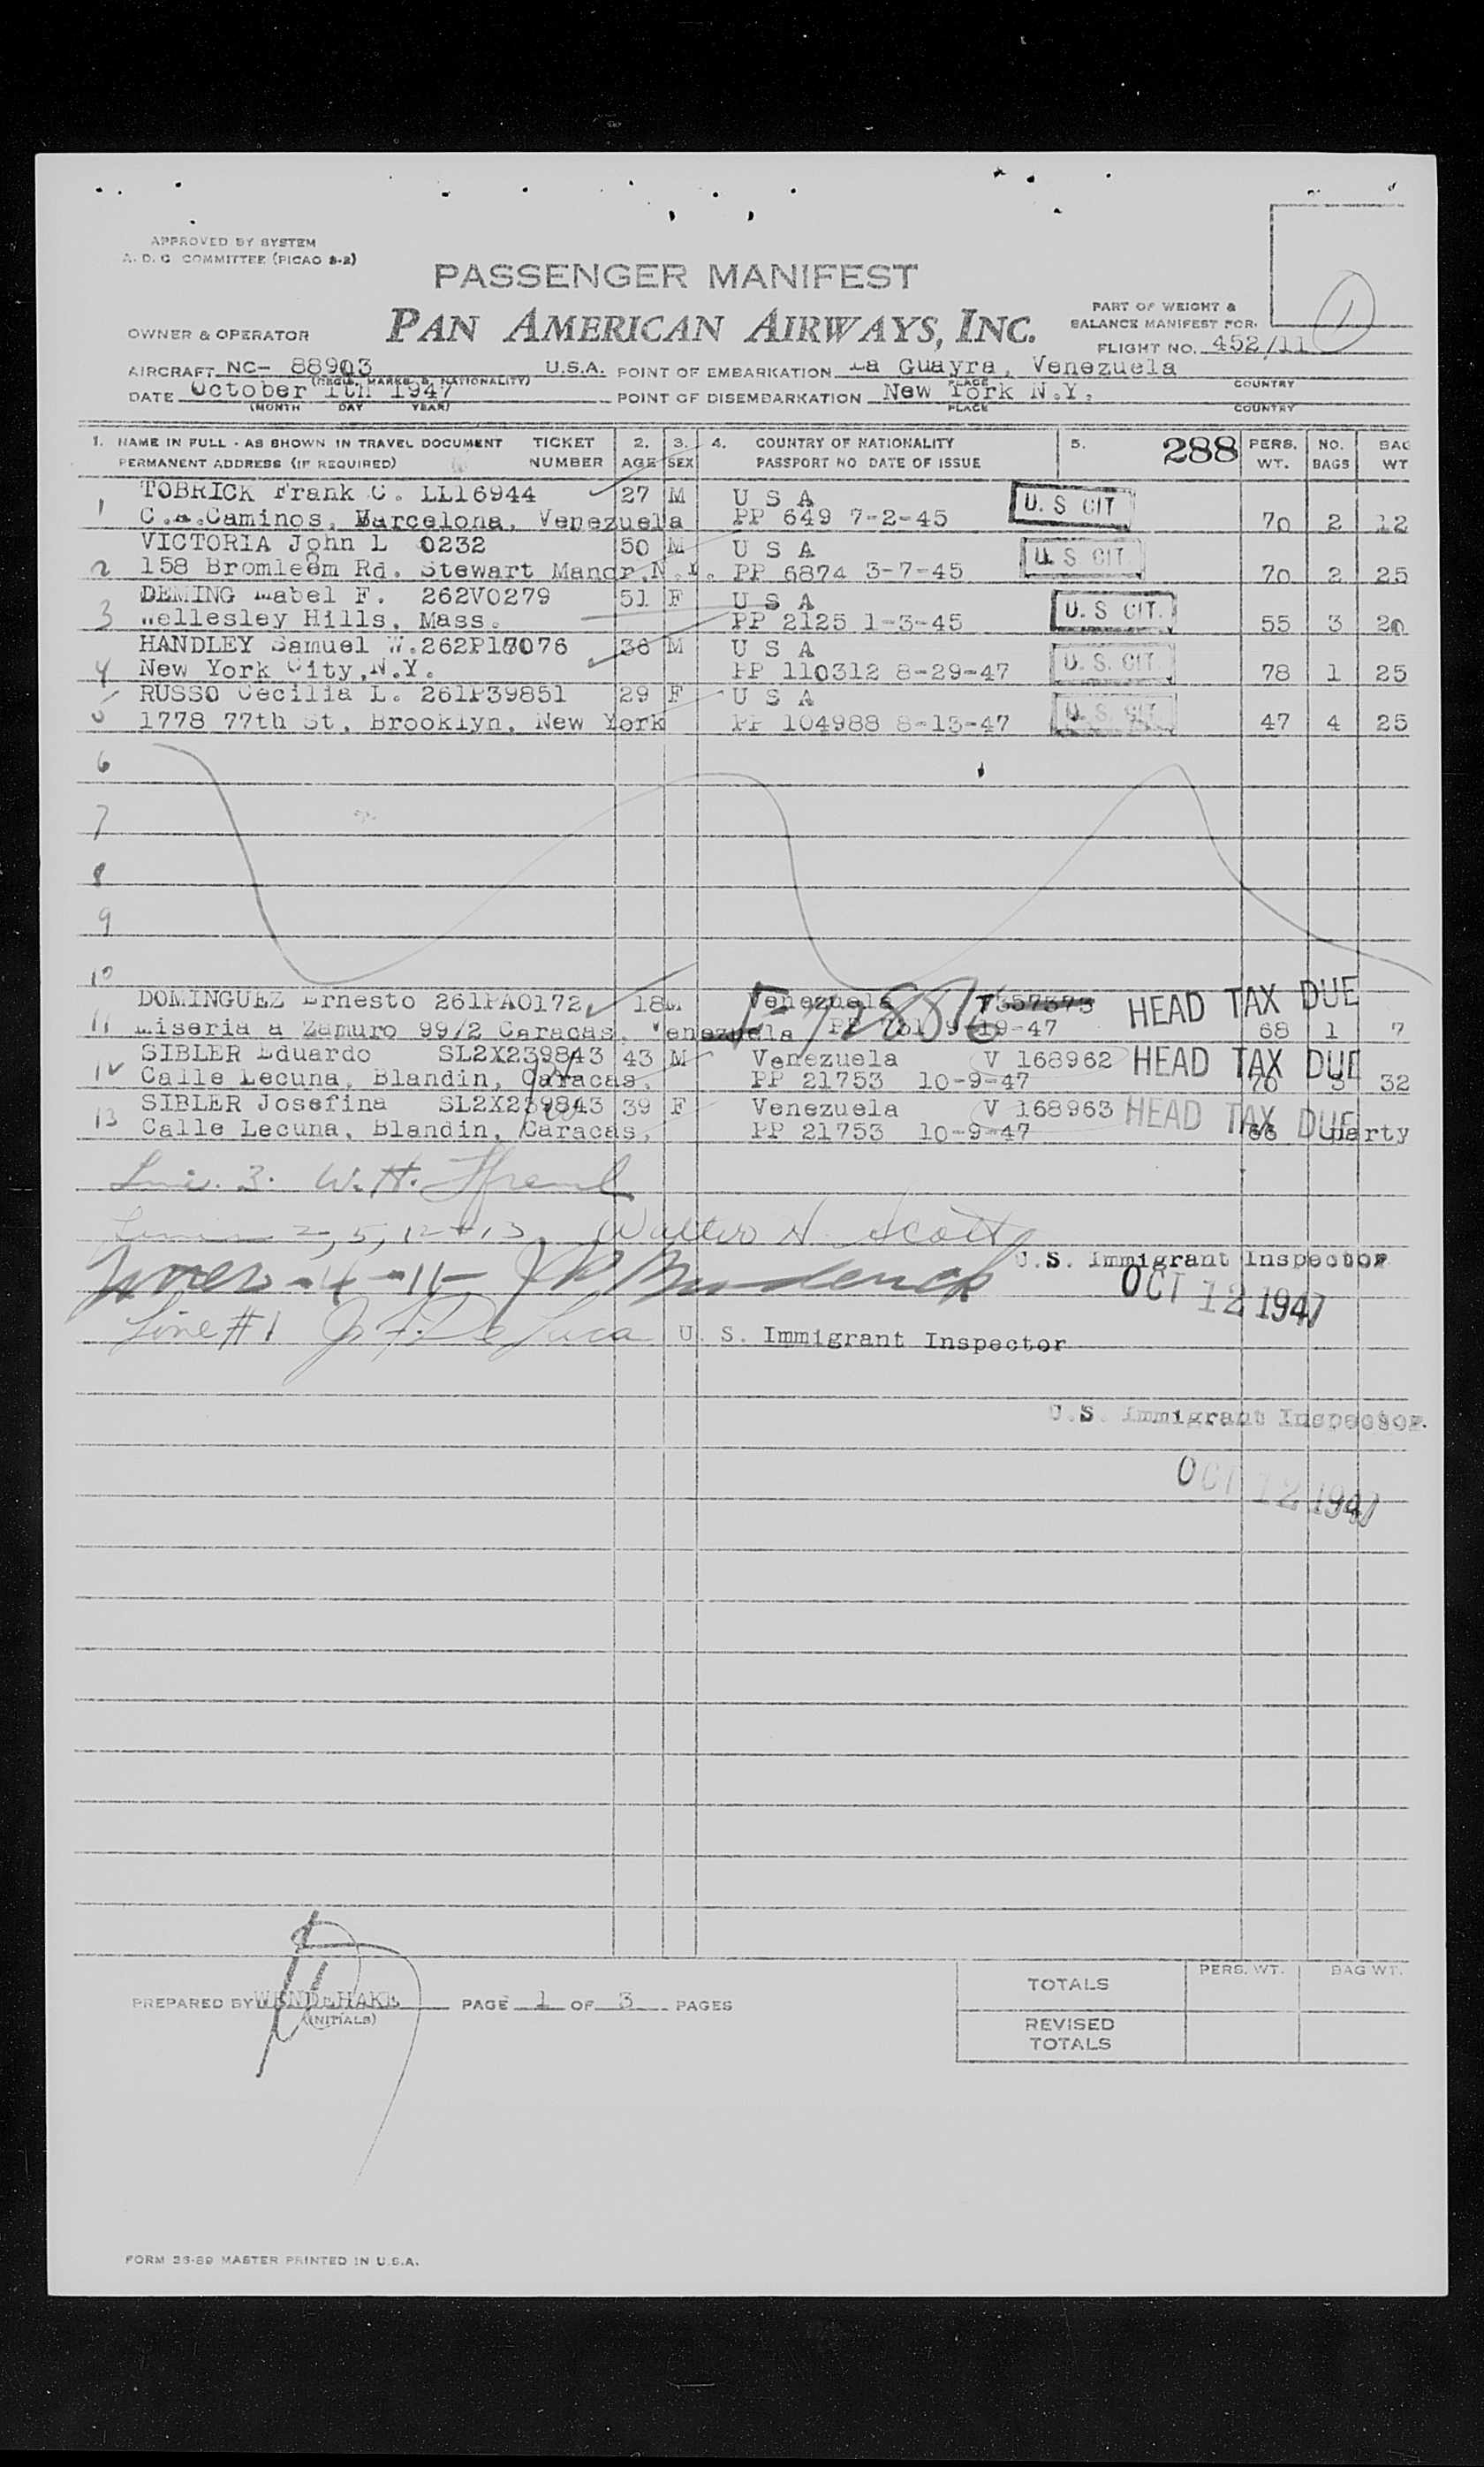 APPROVED BY SYSTEM
A. D. C COMMITTEE (PICAO 8-2)
PASSENGER MANIFEST
PAN AMERICAN AIRWAYS, INC.
OWNER & OPERATOR
PART OF WEIGHT &
BALANCE MANIFEST FOR.
FLIGHT NO. 452/11
1
AIRCRAFT NC- 88903 U.S.A. POINT OF EMBARKATION La Guayra, Venezuela
(REGIS. MARKS & NATIONALITY) PLACE COUNTRY
DATE October 1th 1947 POINT OF DISEMBARKATION New York N.Y.
(MONTH DAY YEAR) PLACE COUNTRY
1. NAME IN FULL - AS SHOWN IN TRAVEL DOCUMENT TICKET 2. 3. 4. COUNTRY OF NATIONALITY 5. 288 PERS. NO. BAG
PERMANENT ADDRESS (IF REQUIRED) NUMBER AGE SEX PASSPORT NO DATE OF ISSUE WT. BAGS WT
TOBRICK Frank C. LL16944 27 M U S A U. S CIT
1 C.A.Caminos, Barcelona, Venezuela PP 649 7-2-45 70 2 12
VICTORIA John L 0232 50 M U S A U. S CIT.
2 158 Bromleem Rd. Stewart Manor,N.Y. PP 6874 3-7-45 70 2 25
DEMING Mabel F. 262V0279 51 F U S A U. S CIT.
3 Wellesley Hills, Mass. PP 2125 1-3-45 55 3 20
HANDLEY Samuel W.262P13076 36 M U S A U. S. CIT.
4 New York City,N.Y. PP 110312 8-29-47 78 1 25
RUSSO Cecilia L. 261P39851 29 F U S A U. S. CIT.
5 1778 77th St, Brooklyn, New York PP 104988 8-13-47 47 4 25
6
7
8
9
10
DOMINGUEZ Ernesto 261PA0172 18 M Venezuela HEAD TAX DUE
11 Miseria a Zamuro 99/2 Caracas, Venezuela PP 9-19-47 68 1 7
SIBLER Eduardo SL2X239843 43 M Venezuela V 168962 HEAD TAX DUE
12 Calle Lecuna, Blandin, Caracas, PP 21753 10-9-47 70 3 32
SIBLER Josefina SL2X239843 39 F Venezuela V 168963 HEAD TAX DUE
13 Calle Lecuna, Blandin, Caracas, PP 21753 10-9-47 66 party
Line 3. W. H.
Lines 2, 5, 12 + 13 Walter H. Scott
U.S. Immigrant Inspector
Lines - 4 - 11 -
OCT 12 1947
Line #1 J. F. De Luca U. S. Immigrant Inspector
U.S. Immigrant Inspector.
OCT 12 1947
PREPARED BY WENDEHAKE PAGE 1 OF 3 PAGES
(INITIALS)
PERS. WT. BAG WT.
TOTALS
REVISED
TOTALS
FORM 36-89 MASTER PRINTED IN U.S.A.